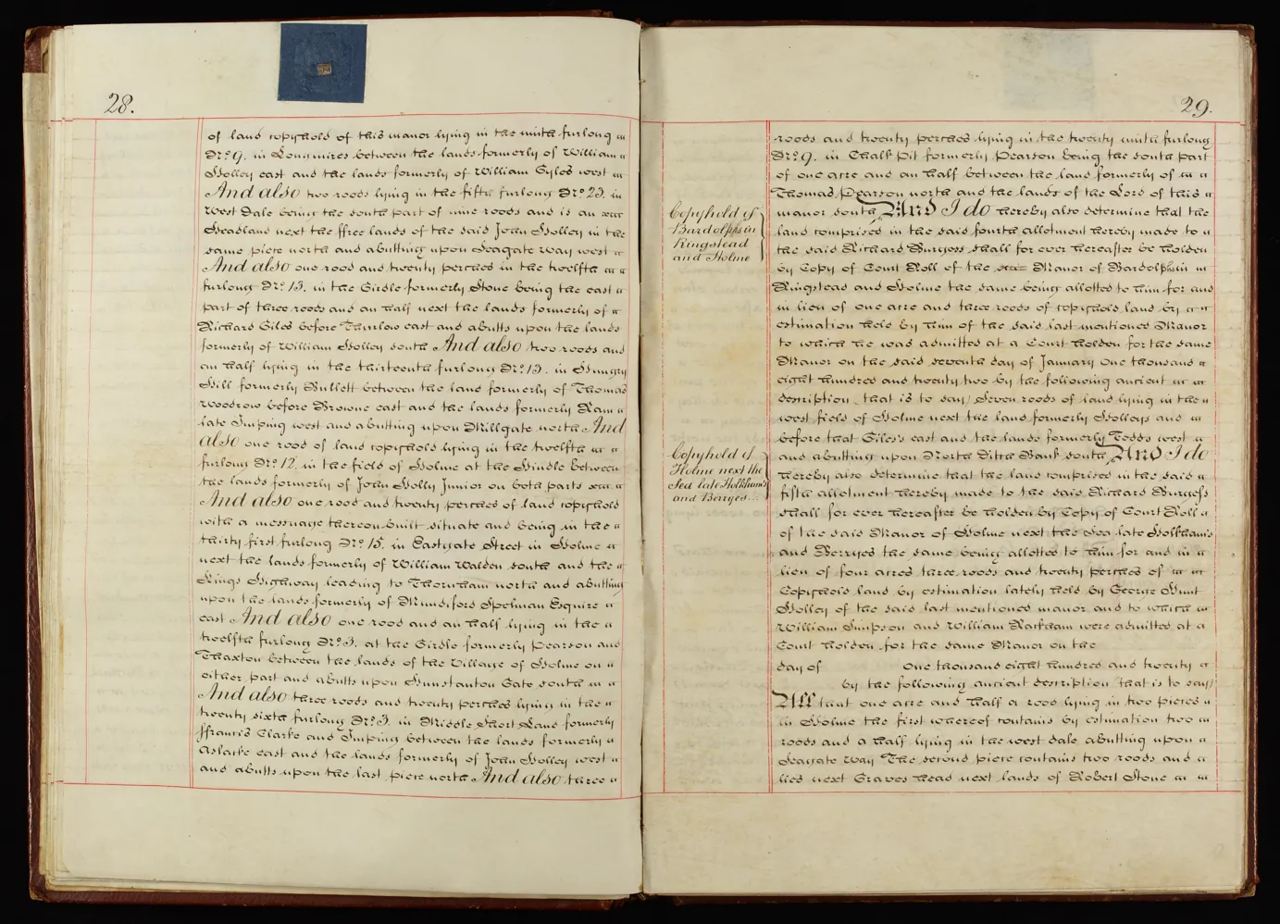 28.
of land copyhold of this manor lying in the ninth furlong
No. 9. in Longmires between the lands formerly of William
Holley east and the lands formerly of William Gyles west
And also two roods lying in the fifth furlong No. 23. in
West Dale being the south part of nine roods and is an
Headland next the ffree lands of the said John Holley in the
same piece north and abutting upon Seagate Way west
And also one rood and twenty perches in the twelfth
furlong No. 13. in the Girdle formerly Stone being the east
part of three roods and an half next the lands formerly of
Richard Giles before Thurlow east and abutts upon the lands
formerly of William Holley south And also two roods and
an half lying in the thirteenth furlong No. 13. in Hungry
Hill formerly Bullett between the land formerly of Thomas
Woodrow before Browne east and the lands formerly Ram
late Imping west and abutting upon Millgate north And
also one rood of land copyhold lying in the twelfth
furlong No. 12. in the field of Holme at the Hindle between
the lands formerly of John Holly Junior on both parts
And also one rood and twenty perches of land copyhold
with a messuage thereon built situate and being in the
thirty first furlong No. 15. in Eastgate Street in Holme
next the lands formerly of William Walden south and the
Kings Highway leading to Thornham north and abutting
upon the lands formerly of Mundiford Spelman Esquire
east And also one rood and an half lying in the
twelfth furlong No. 3. at the Girdle formerly Pearson and
Thaxton between the lands of the Village of Holme on
either part and abutts upon Hunstanton Gate south in
And also three roods and twenty perches lying in the
twenty sixth furlong No. 3. in Middle Short Land formerly
ffrancis Clarke and Imping between the lands formerly
Aslarke east and the lands formerly of John Holley west
and abutts upon the last piece north And also three
29.
roods and twenty perches lying in the twenty ninth furlong
No. 9. in Chalk Pit formerly Pearson being the south part
of one acre and an half between the land formerly of
Thomas Pearson north and the lands of the Lord of this
manor south And I do hereby also determine that the
Copyhold of
Bardolphs in
Ringstead
and Holme
land comprised in the said fourth allotment hereby made to
the said Richard Burgess shall for ever hereafter be holden
by Copy of Court Roll of the Manor of Bardolphs in
Ringstead and Holme the same being allotted to him for and
in lieu of one acre and three roods of copyhold land by
estimation held by him of the said last mentioned Manor
to which he was admitted at a Court holden for the same
Manor on the said seventh day of January One thousand
eight hundred and twenty two by the following ancient
description that is to say) Seven roods of land lying in the
west field of Holme next the land formerly Holleys and
before that Giles's east and the lands formerly Todds west
and abutting upon North Ditch Bank south And I do
Copyhold of
Holme next the
Sea late Holkhams
and Berryes...
hereby also determine that the land comprised in the said
fifth allotment hereby made to the said Richard Burgess
shall for ever hereafter be holden by Copy of Court Roll
of the said Manor of Holme next the Sea late Holkham's
and Berryes the same being allotted to him for and in
lieu of four acres three roods and twenty perches of
Copyhold land by estimation lately held by George Hunt
Holley of the said last mentioned manor and to which
William Simpson and William Rackham were admitted at a
Court holden for the same Manor on the
day of One thousand eight hundred and twenty
by the following ancient description that is to say)
All that one acre and half a rood lying in two pieces
in Holme the first whereof contains by estimation two
roods and a half lying in the west dale abutting upon
Seagate Way The second piece contains two roods and
lies next Graves head next lands of Robert Stone